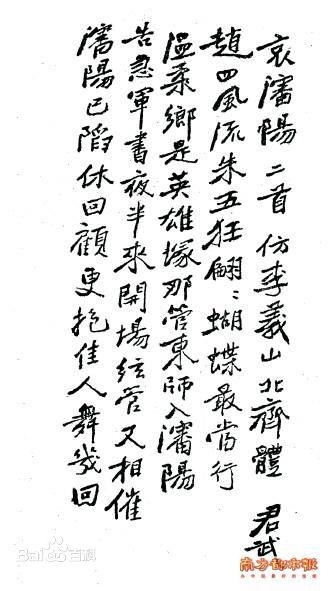 哀瀋陽二首 仿李義山北齊體 君武
趙四風流朱五狂翩〻蝴蝶最當行
溫柔鄉是英雄塚那管東師入瀋陽
告急軍書夜半來開場絃管又相催
瀋陽已陷休回顧更抱佳人舞幾回
Bai百科
南方都市報